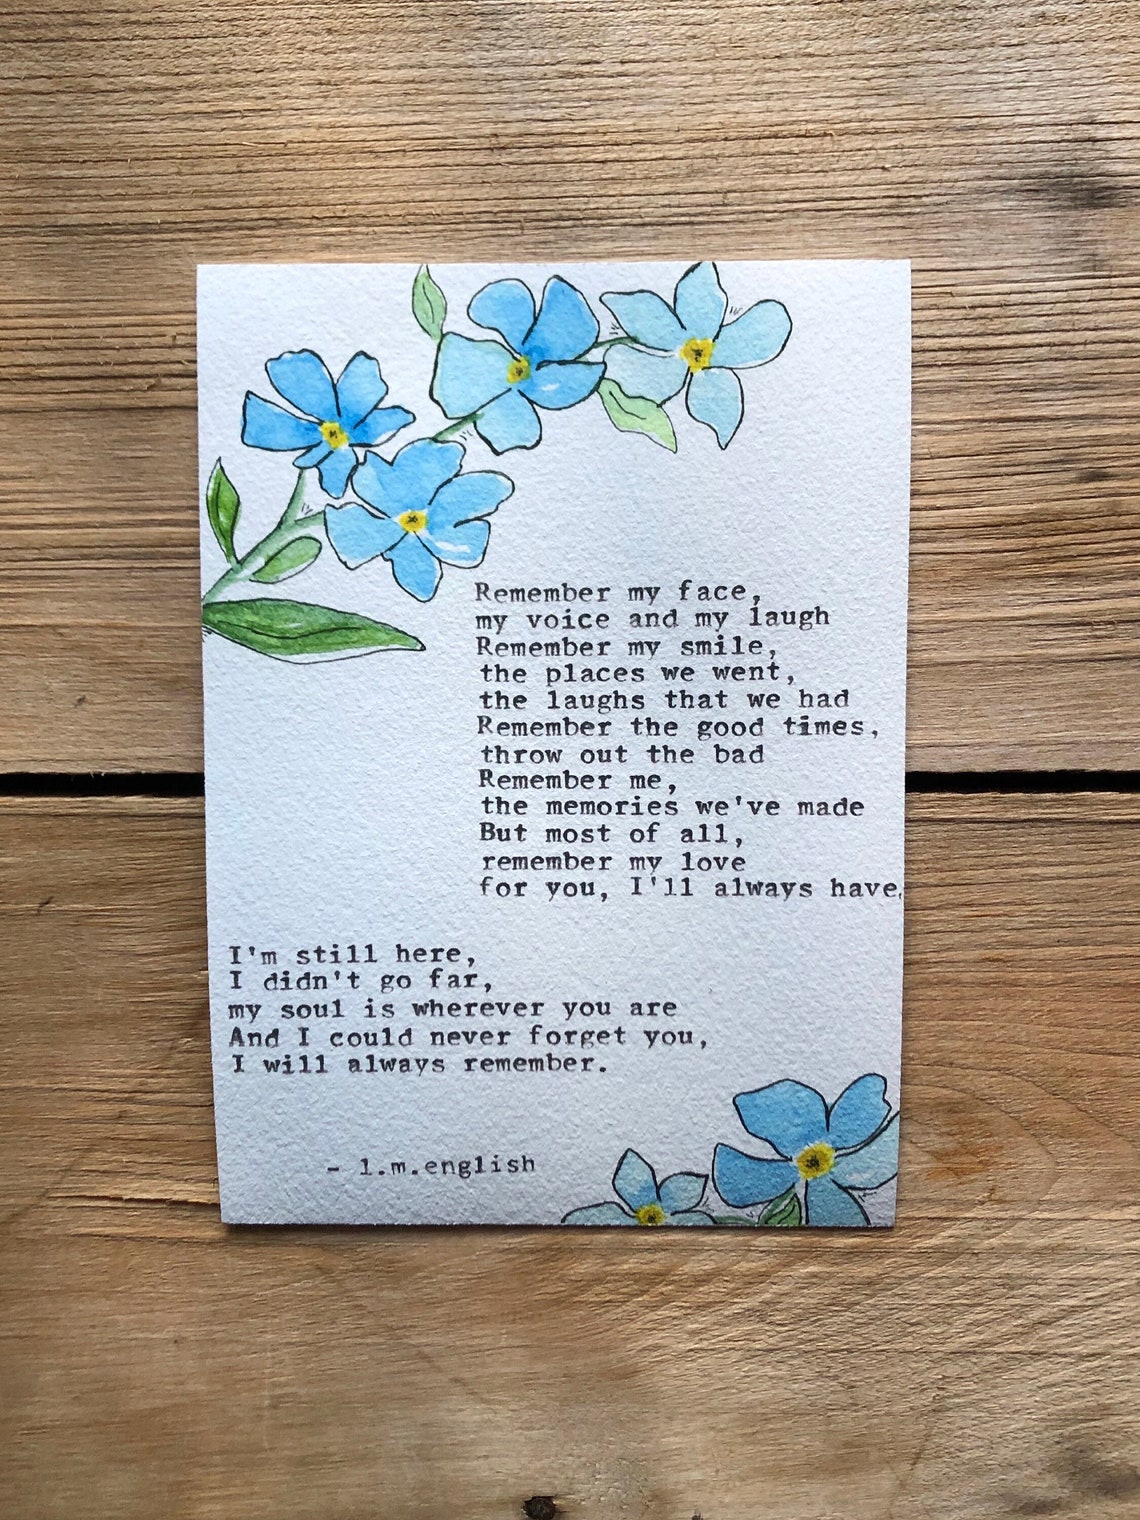 Remember my face,
my voice and my laugh
Remember my smile,
the places we went,
the laughs that we had
Remember the good times,
throw out the bad
Remember me,
the memories we've made
But most of all,
remember my love
for you, I'll always have.
I'm still here,
I didn't go far,
my soul is wherever you are
And I could never forget you,
I will always remember.
- l.m.english